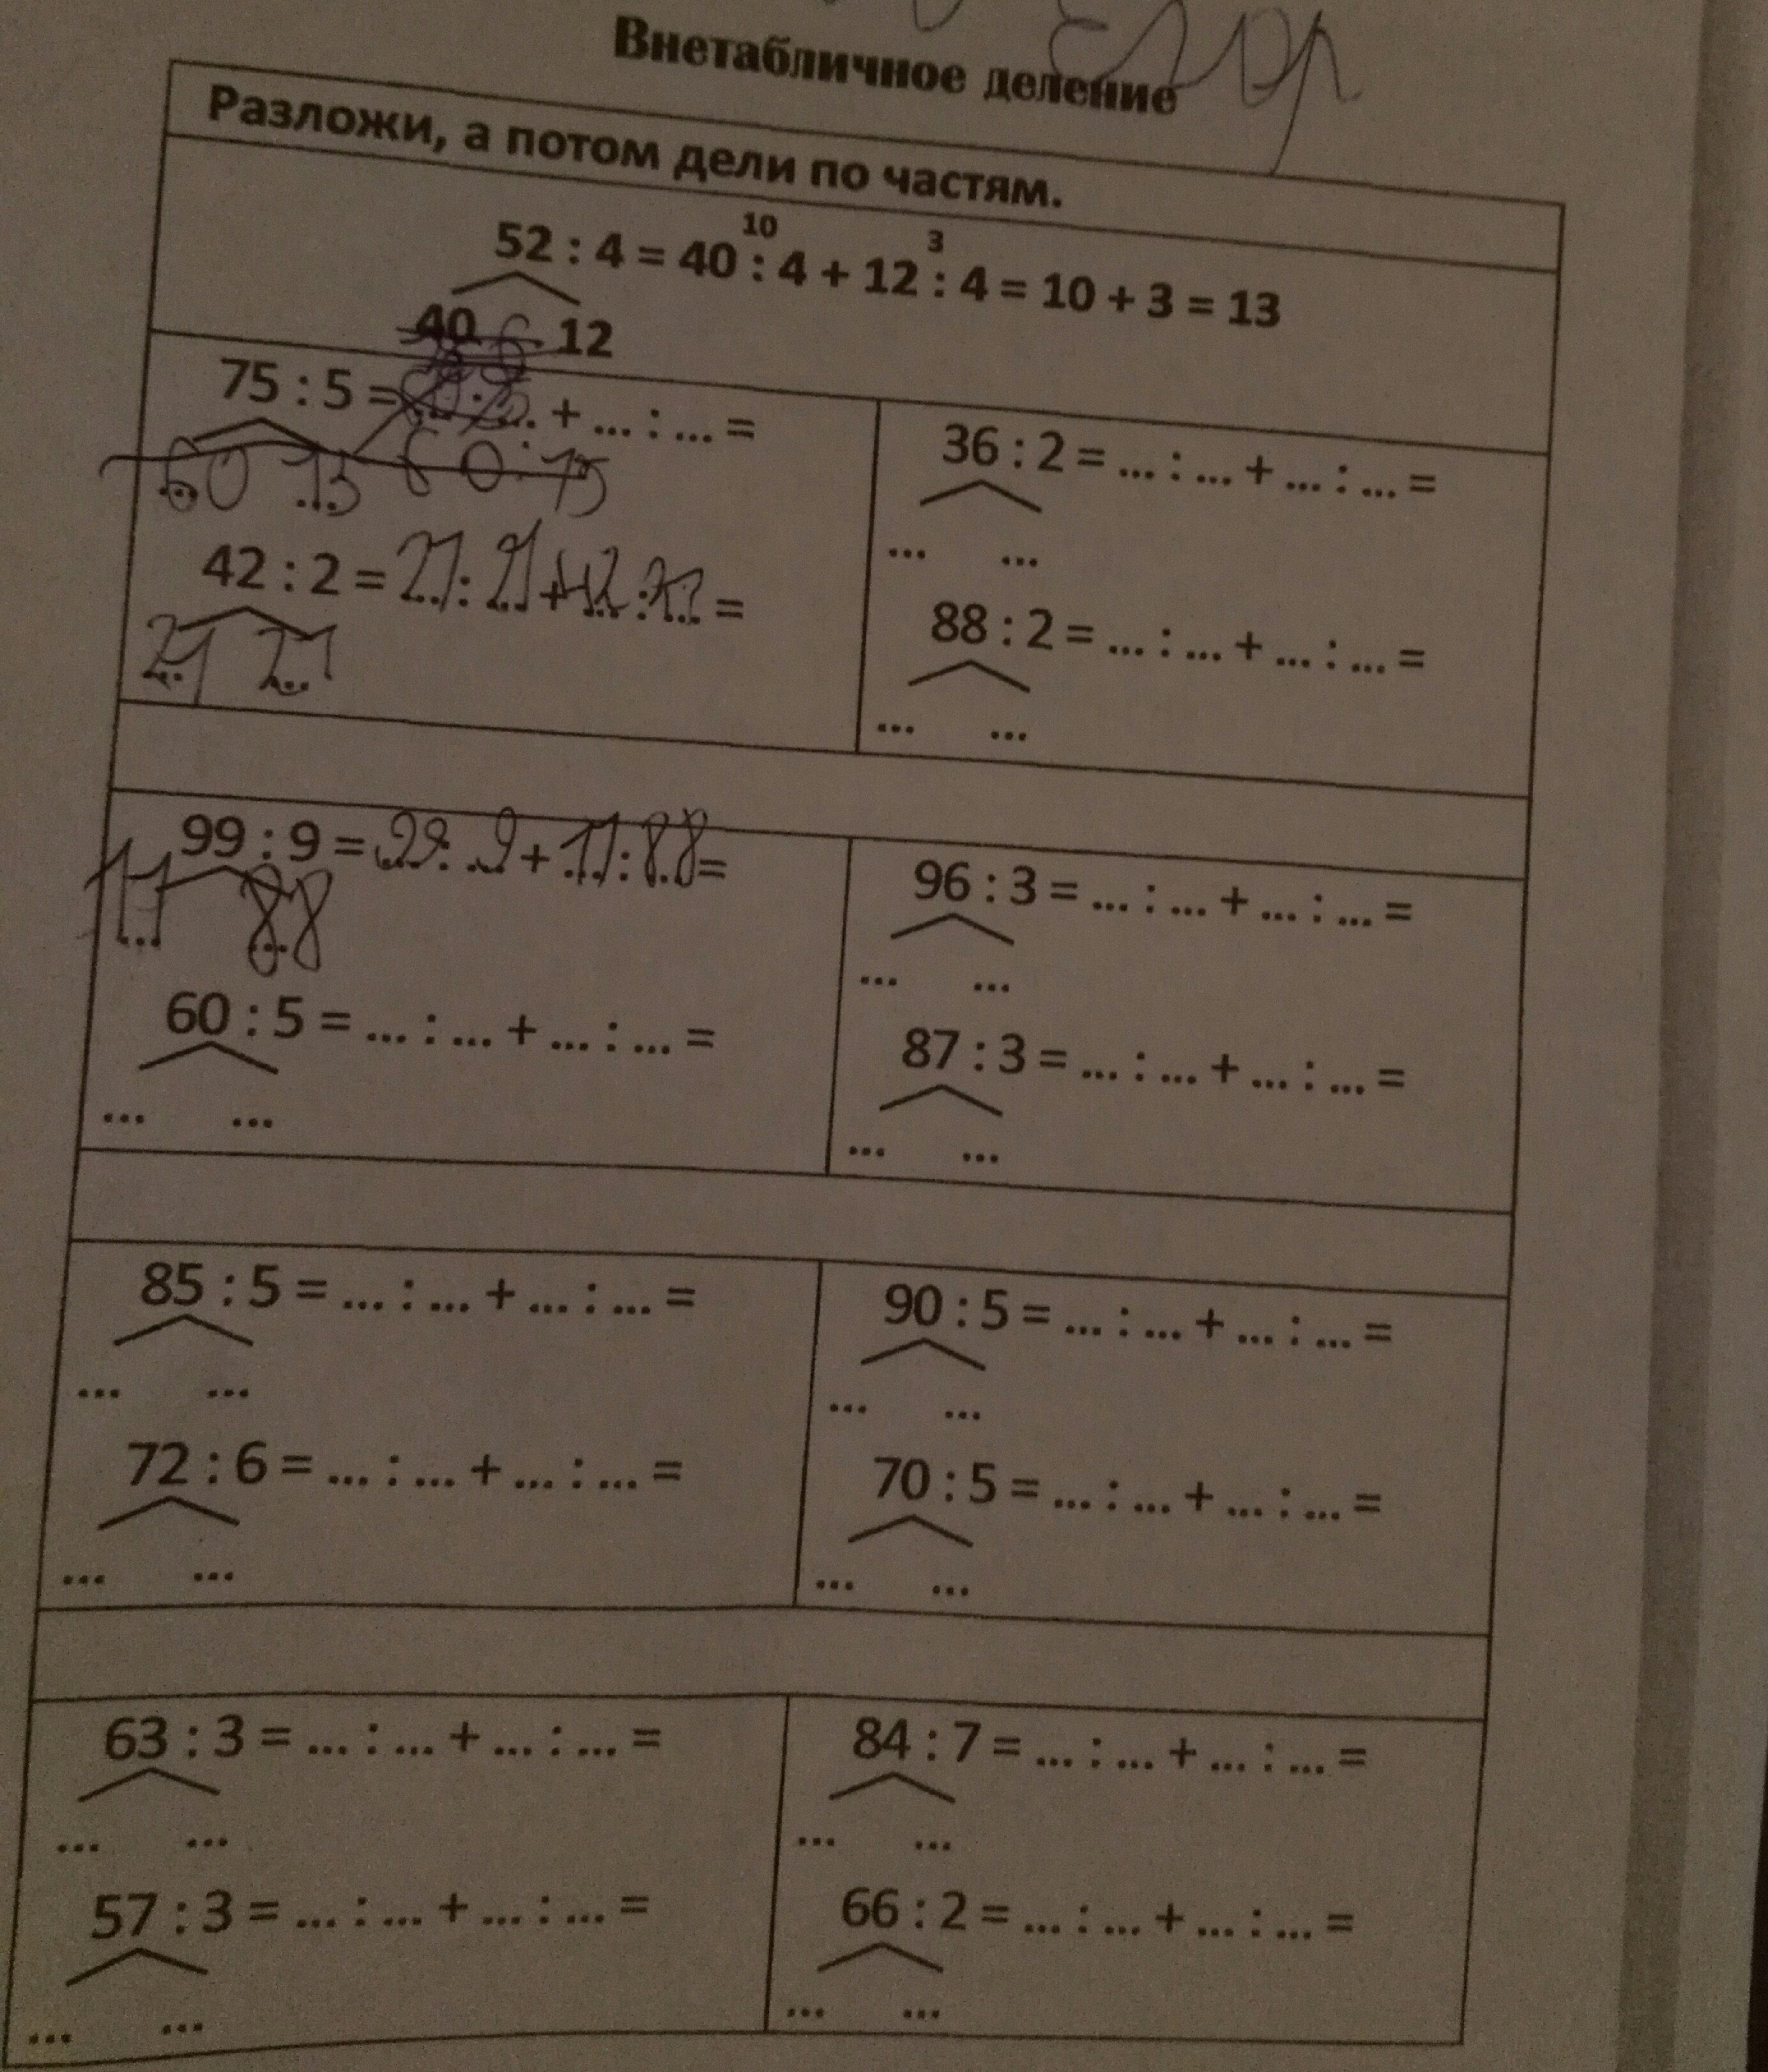 Егор
Внетабличное деление
Разложи, а потом дели по частям.
10 3
52 : 4 = 40 : 4 + 12 : 4 = 10 + 3 = 13
40 12
75 : 5 = ... + ... : ... =
60 15 60 : 15
42 : 2 = 21 : 21 + 12 : 12 =
21 21
36 : 2 = ... : ... + ... : ... =
... ...
88 : 2 = ... : ... + ... : ... =
... ...
99 : 9 = 99 : 9 + 11 : 88 =
11 88
60 : 5 = ... : ... + ... : ... =
... ...
96 : 3 = ... : ... + ... : ... =
... ...
87 : 3 = ... : ... + ... : ... =
... ...
85 : 5 = ... : ... + ... : ... =
... ...
72 : 6 = ... : ... + ... : ... =
... ...
90 : 5 = ... : ... + ... : ... =
... ...
70 : 5 = ... : ... + ... : ... =
... ...
63 : 3 = ... : ... + ... : ... =
... ...
57 : 3 = ... : ... + ... : ... =
... ...
84 : 7 = ... : ... + ... : ... =
... ...
66 : 2 = ... : ... + ... : ... =
... ...